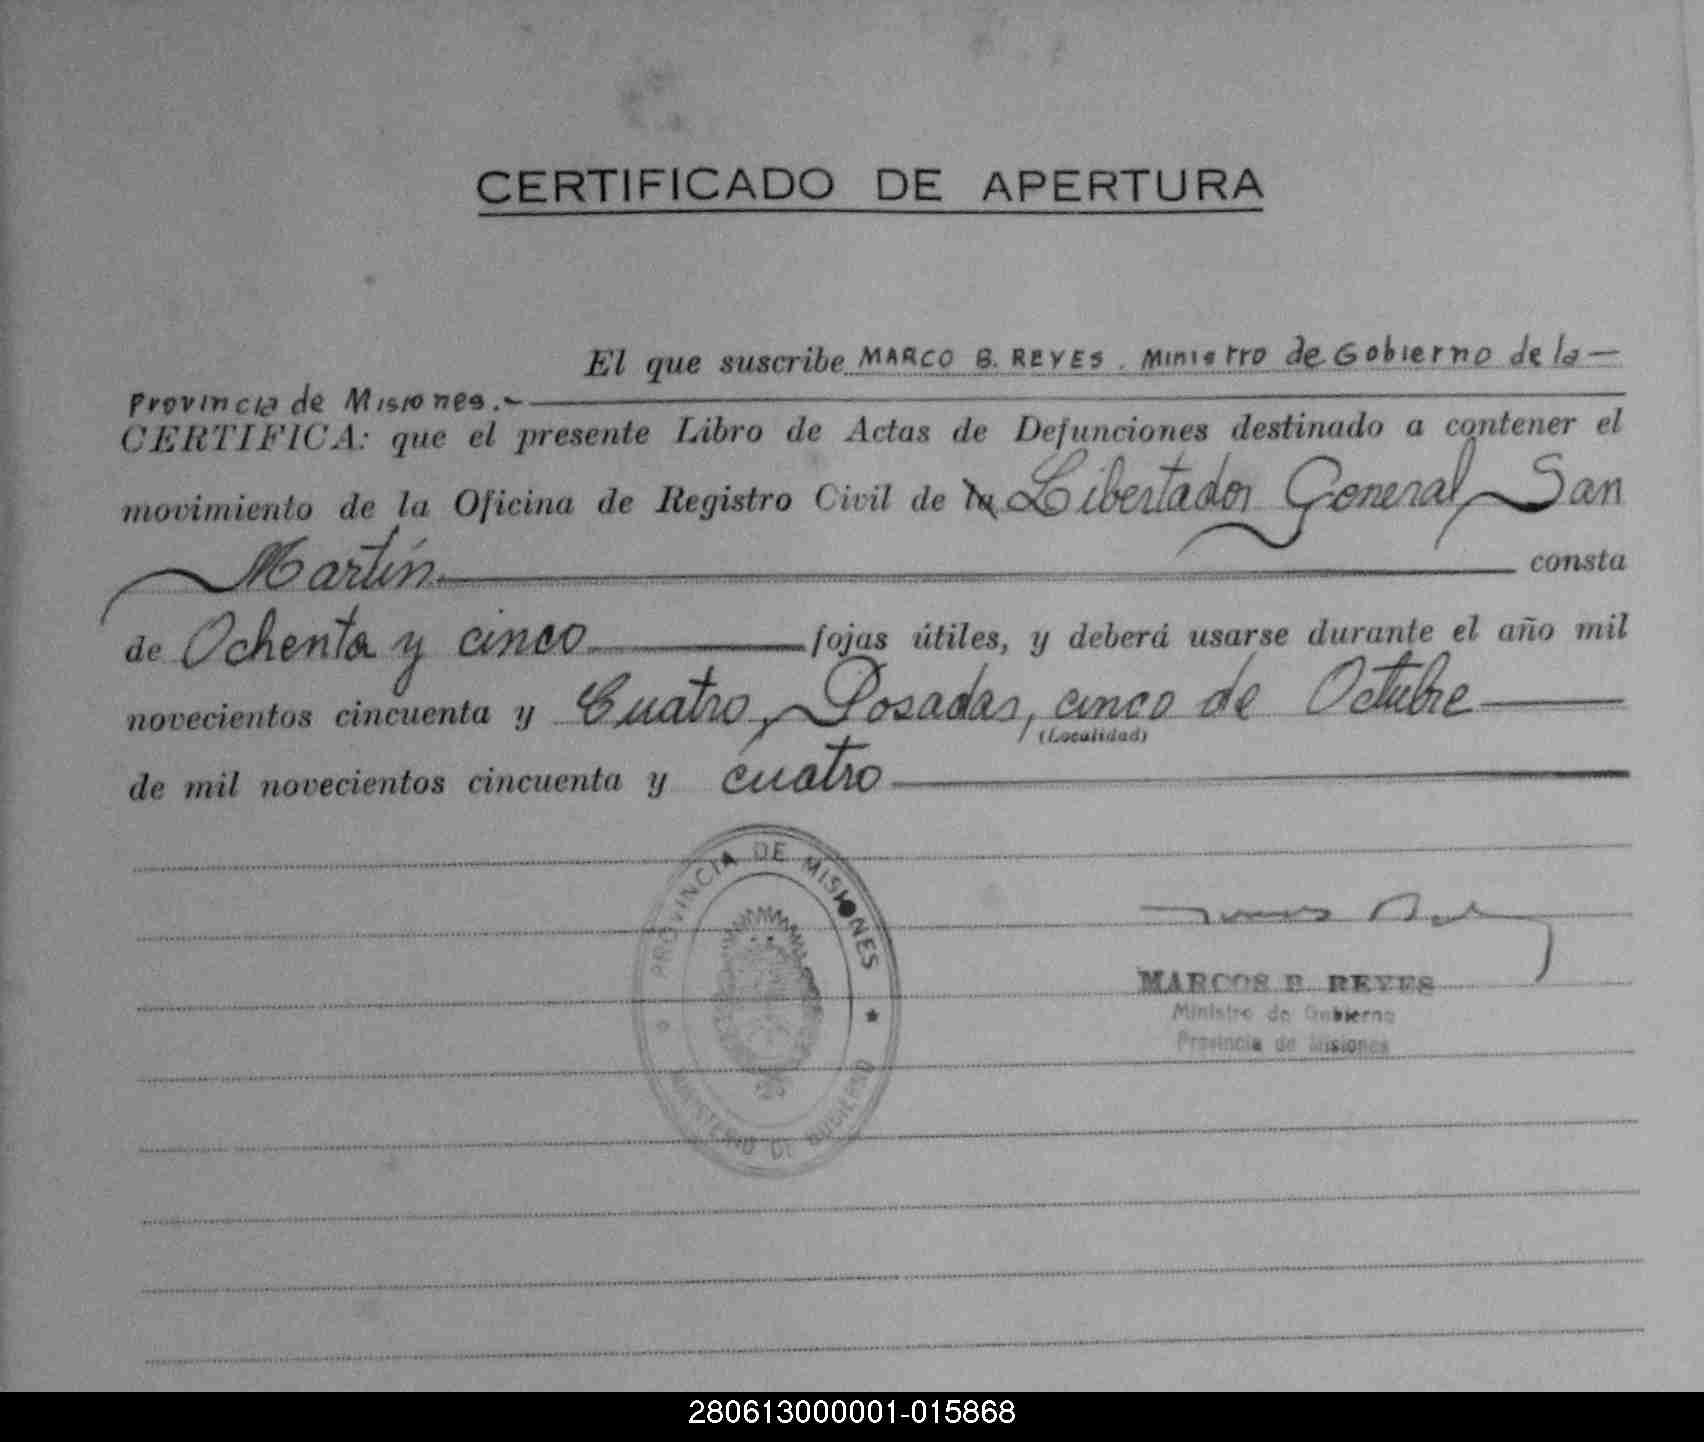 CERTIFICADO DE APERTURA
El que suscribe MARCO B. REYES. Ministro de Gobierno de la—
Provincia de Misiones.-
CERTIFICA: que el presente Libro de Actas de Defunciones destinado a contener el
movimiento de la Oficina de Registro Civil de la Libertador General San
Martín consta
de Ochenta y cinco fojas útiles, y deberá usarse durante el año mil
novecientos cincuenta y Cuatro, Posadas, cinco de Octubre
(Localidad)
de mil novecientos cincuenta y cuatro
PROVINCIA DE MISIONES
MINISTERIO DE GOBIERNO
MARCOS B. REYES
Ministro de Gobierno
Provincia de Misiones
280613000001-015868